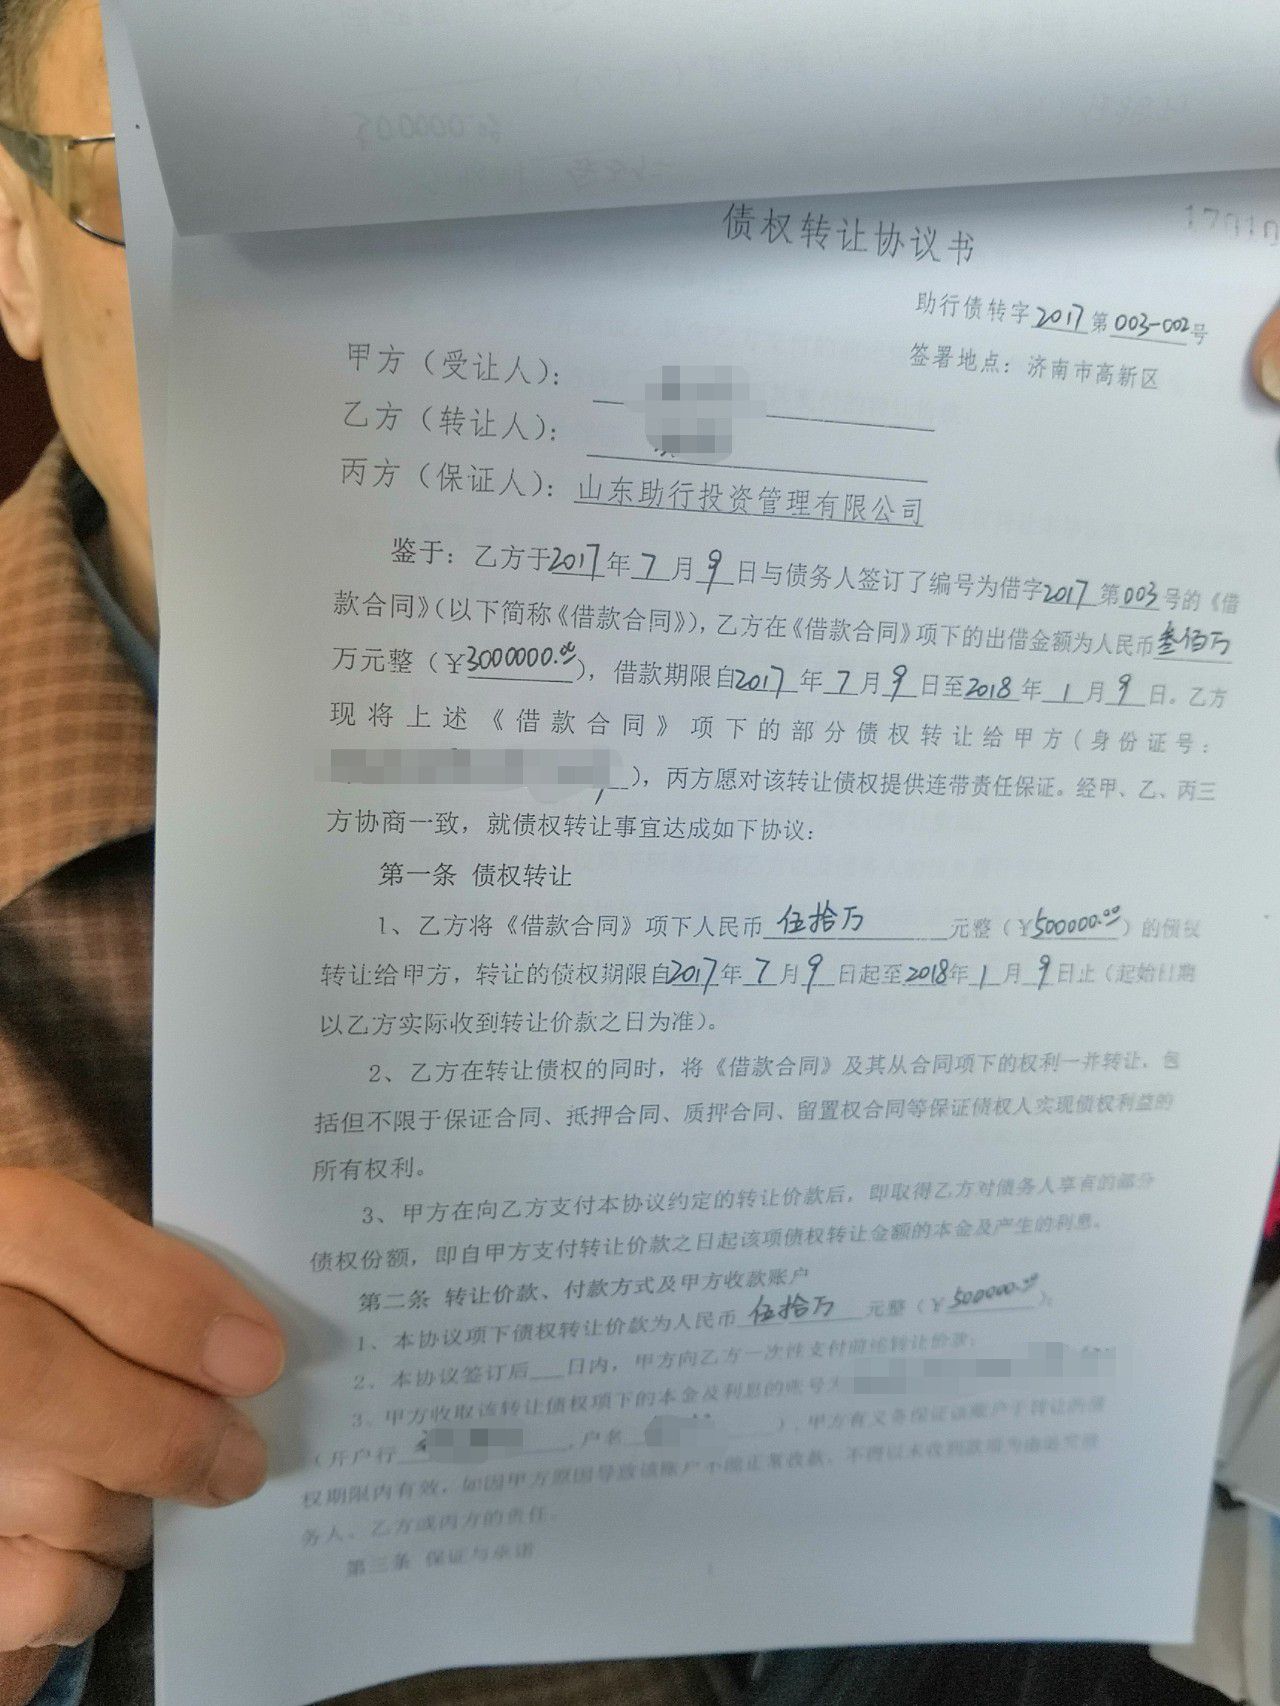 债权转让协议书
助行债转字2017第003-002号
签署地点：济南市高新区
甲方（受让人）：
乙方（转让人）：
丙方（保证人）：山东助行投资管理有限公司
鉴于：乙方于2017年7月9日与债务人签订了编号为借字2017第003号的《借
款合同》（以下简称《借款合同》），乙方在《借款合同》项下的出借金额为人民币叁佰万
万元整（￥3000000.00），借款期限自2017年7月9日至2018年1月9日。乙方
现将上述《借款合同》项下的部分债权转让给甲方（身份证号：
），丙方愿对该转让债权提供连带责任保证。经甲、乙、丙三
方协商一致，就债权转让事宜达成如下协议：
第一条 债权转让
1、乙方将《借款合同》项下人民币伍拾万元整（￥500000.00）的债权
转让给甲方，转让的债权期限自2017年7月9日起至2018年1月9日止（起始日期
以乙方实际收到转让价款之日为准）。
2、乙方在转让债权的同时，将《借款合同》及其从合同项下的权利一并转让，包
括但不限于保证合同、抵押合同、质押合同、留置权合同等保证债权人实现债权利益的
所有权利。
3、甲方在向乙方支付本协议约定的转让价款后，即取得乙方对债务人享有的部分
债权份额，即自甲方支付转让价款之日起该项债权转让金额的本金及产生的利息。
第二条 转让价款、付款方式及甲方收款账户
1、本协议项下债权转让价款为人民币伍拾万元整（￥500000.00）；
2、本协议签订后___日内，甲方向乙方一次性支付前述转让价款；
3、甲方收取该转让债权项下的本金及利息的账号为
（开户行，户名），甲方有义务保证该账户于转让的债
权期限内有效，如因甲方原因导致该账户不能正常收款，不得以未收到款项为由追究债
务人、乙方或丙方的责任。
第三条 保证与承诺